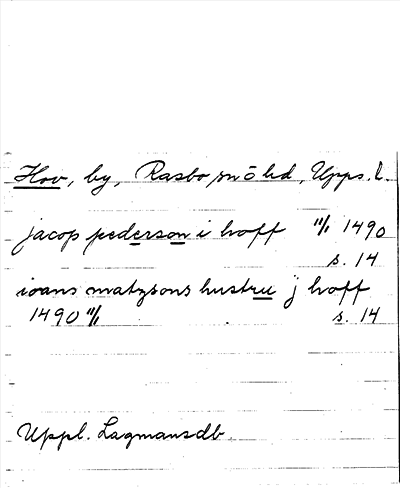 Hov, by, Rasbo sn ö hd, Upps. l.
jacop pederson i hoff 11/1 1490
s. 14
ioans matzsons hustru j hoff
1490 11/1 s. 14
Uppl. Lagmansdb.